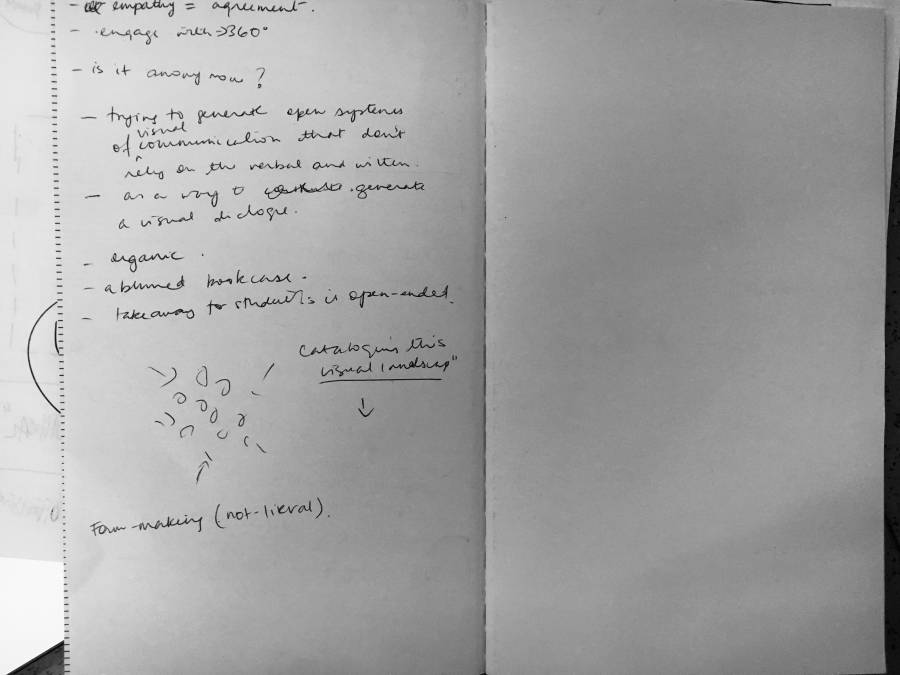 - empathy = agreement.
- engage with → 360°
- is it anonymous?
- trying to generate open systems
of visual communication that don't
rely on the verbal and written.
- as a way to generate
a visual dialogue.
- organic.
- a blurred bookcase.
- takeaway for students is open-ended.
Cataloguing this
visual landscape"
Form-making (not-literal).